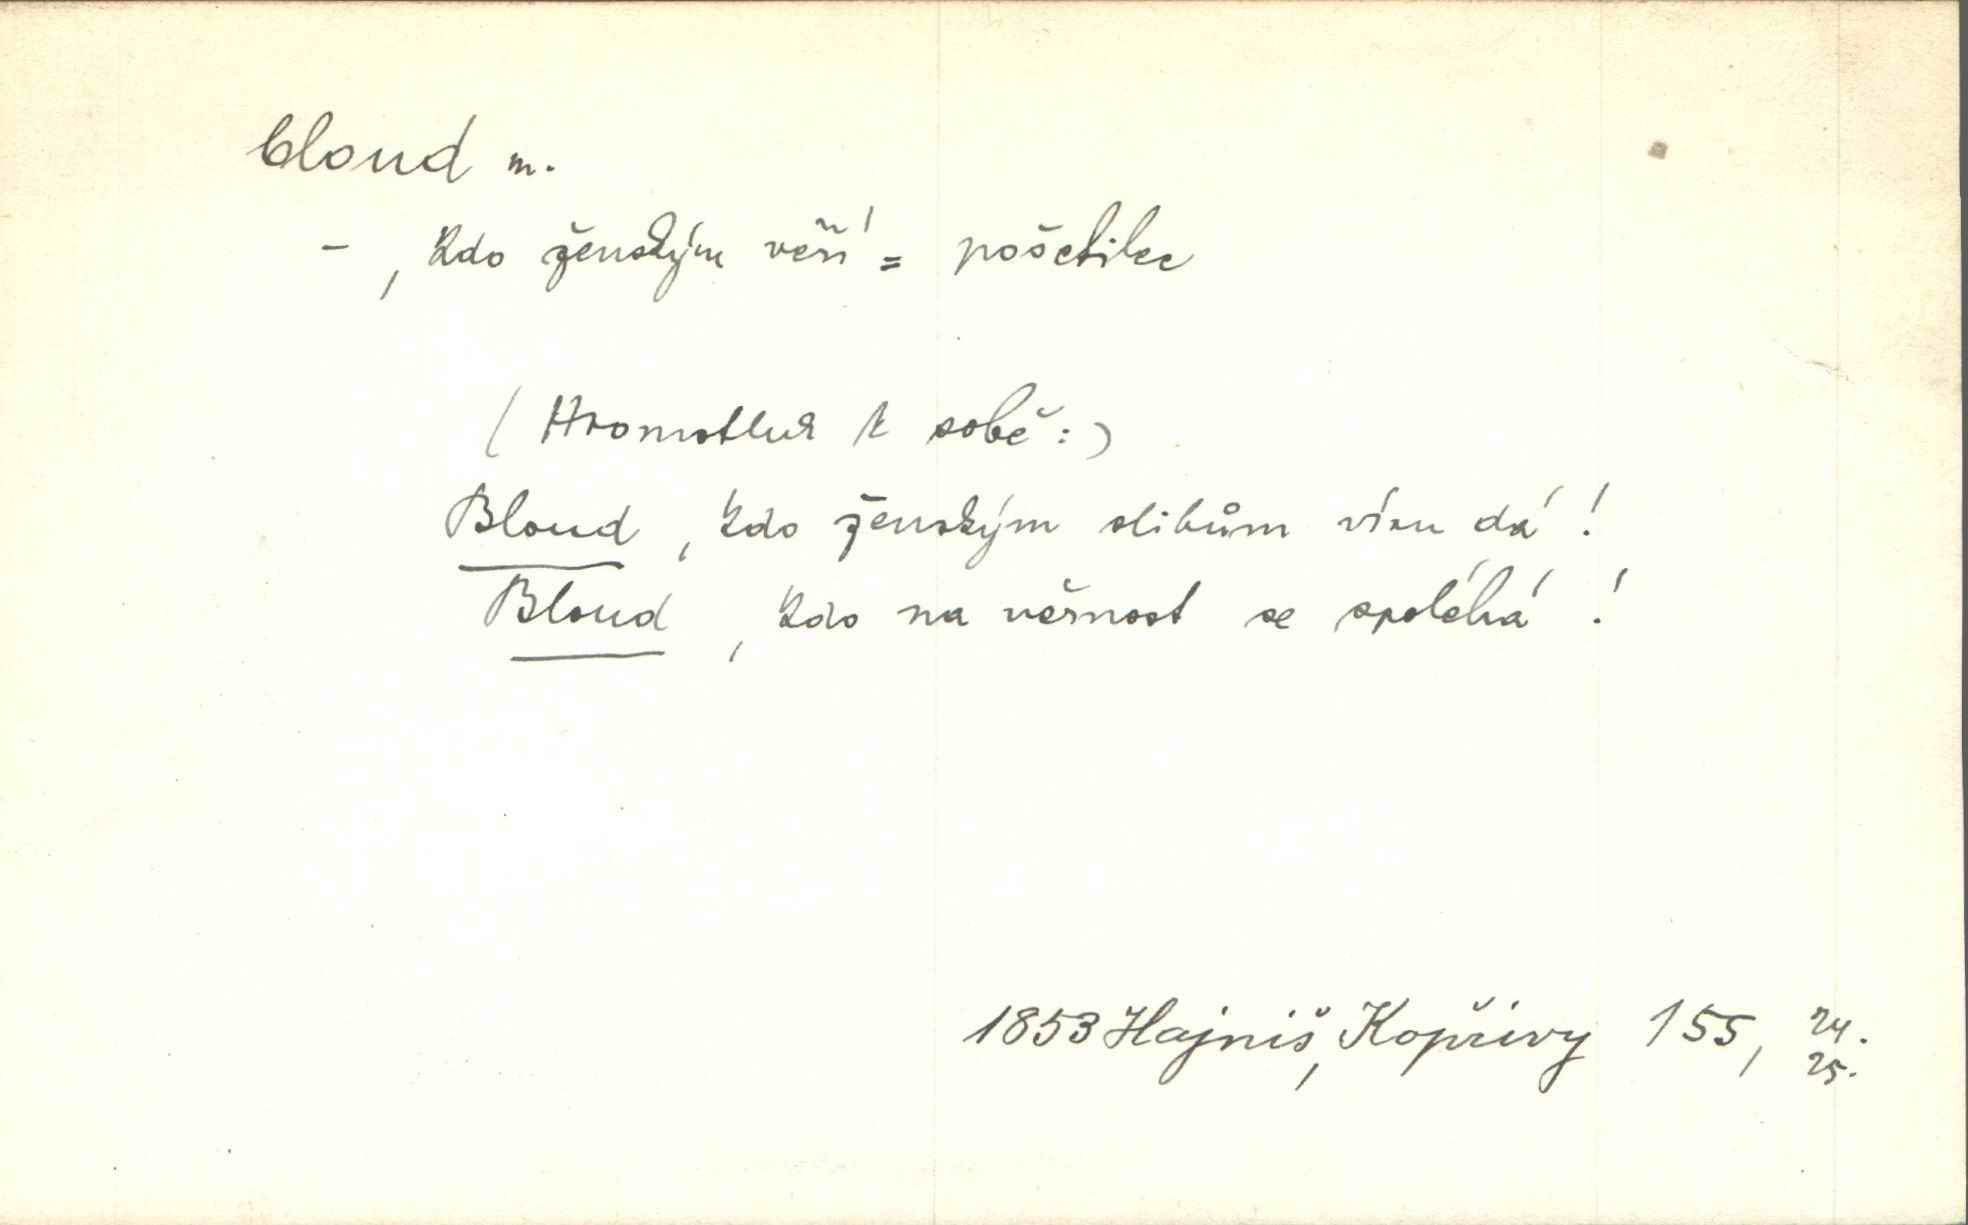 bloud m.
- , kdo ženským věří = pošetilec
( Hromotluk k sobě : )
Bloud , kdo ženským slibům víru dá !
Bloud , kdo na věrnost se spoléhá !
1853 Hajniš, Kopřivy 155, 24.
25.